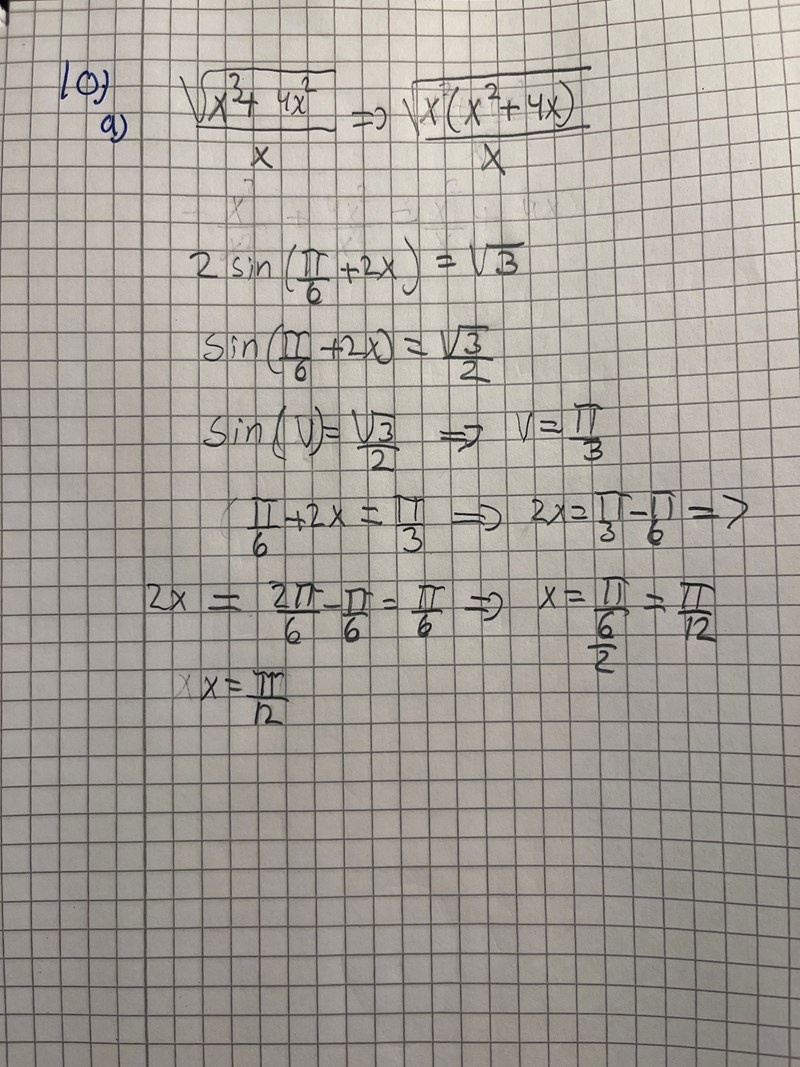 10)
a) √(x³ + 4x²)/x => √(x(x² + 4x))/x
2 sin(π/6 + 2x) = √3
sin(π/6 + 2x) = √3/2
sin(V) = √3/2 => V = π/3
π/6 + 2x = π/3 => 2x = π/3 - π/6 =>
2x = 2π/6 - π/6 = π/6 => x = π/6/2 = π/12
x x = π/12